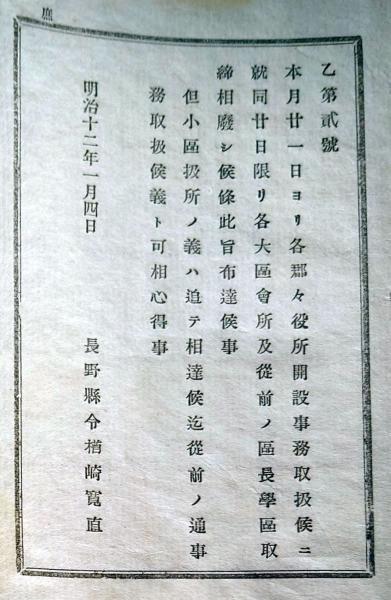 乙第貳號
本月廿一日ヨリ各郡々役所開設事務取扱候ニ
就同廿日限リ各大區會所及從前ノ區長學區取
締相廢シ候條此旨布達候事
但小區扱所ノ義ハ追テ相達候迄從前ノ通事
務取扱候義ト可相心得事
明治十二年一月四日
長野縣令楢崎寬直